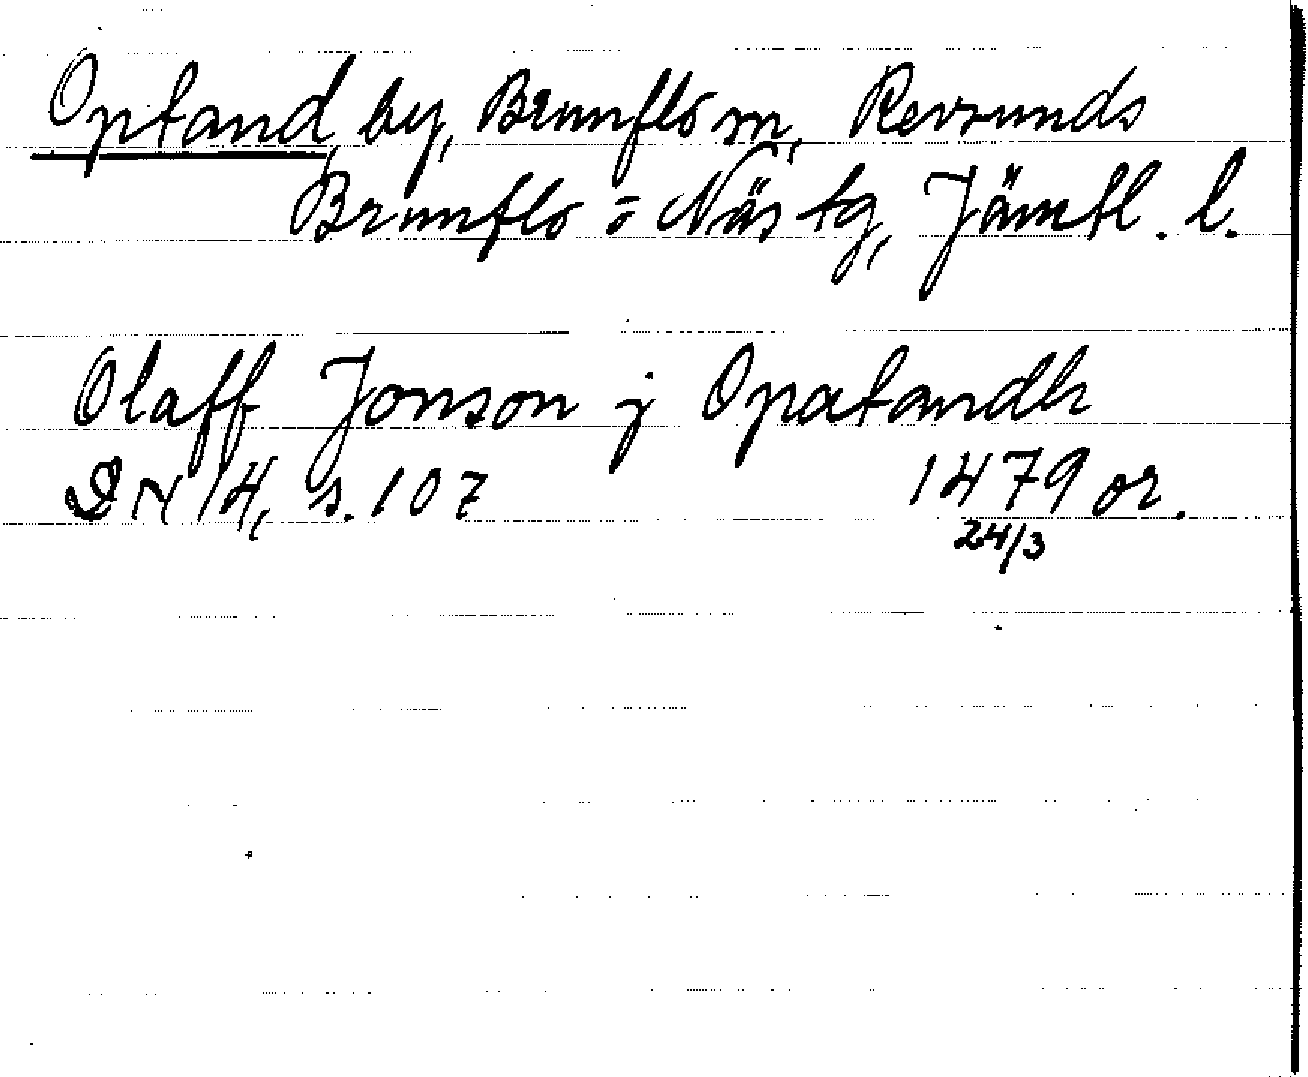 Optand by, Brunflo sn, Revsunds
Brunflo o Näs tg, Jämtl. l.
Olaff Jonson j Opatandh
DN 14, s. 107 1479 or.
24/3